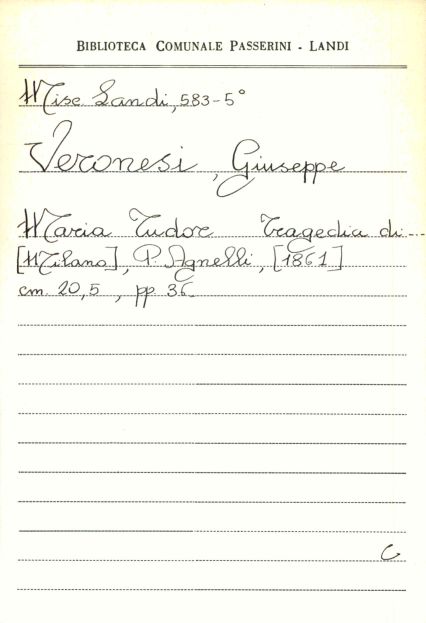 BIBLIOTECA COMUNALE PASSERINI - LANDI
Misc Landi, 583-5°
Veronesi, Giuseppe
Maria Tudor Tragedia di...
[Milano], P. Agnelli, [1861]
cm. 20,5, pp. 36
C